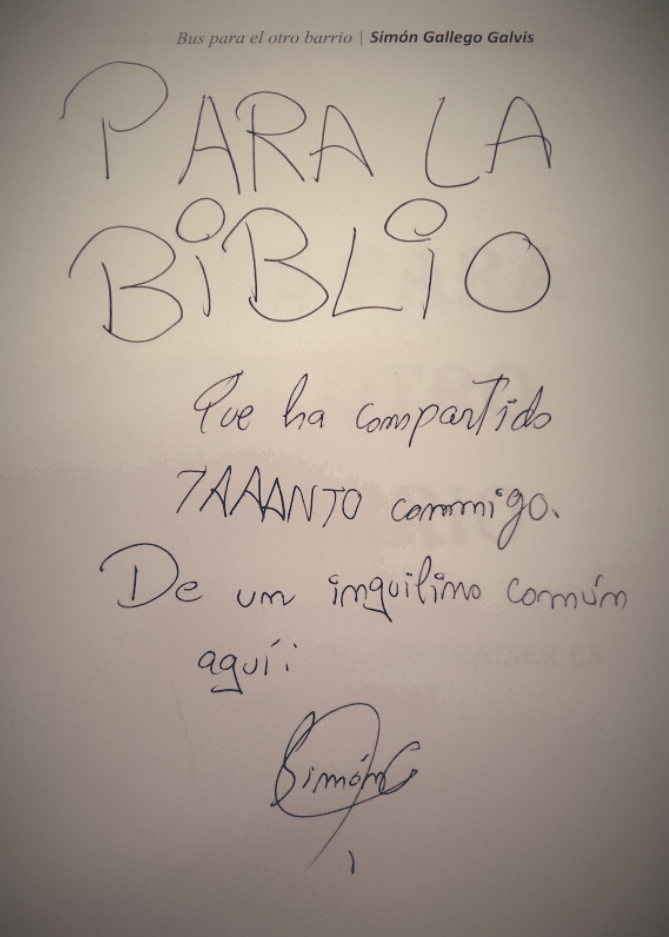 Bus para el otro barrio | Simón Gallego Galvis
PARA LA
BiBLiO
Que ha compartido
TAAANTO conmigo.
De un inquilino común
aquí:
Simón G